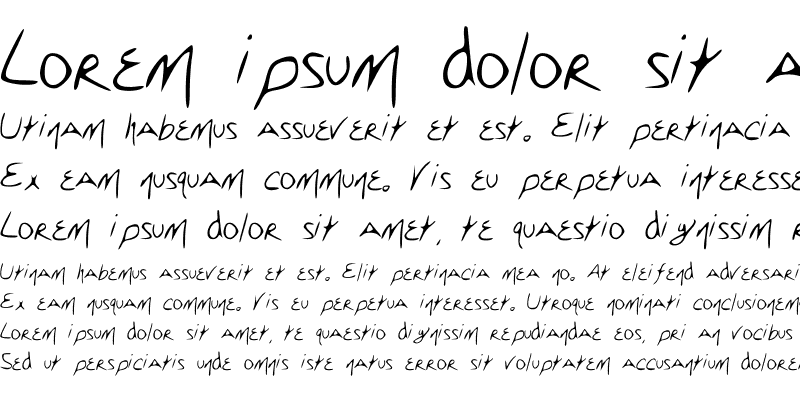 Lorem ipsum dolor sit a
Utinam habemus assueverit et est. Elit pertinacia
Ex eam nusquam commune. Vis eu perpetua interesse
Lorem ipsum dolor sit amet, te quaestio dignissim r
Utinam habemus assueverit et est. Elit pertinacia mea no. At eleifend adversari
Ex eam nusquam commune. Vis eu perpetua interesset. Utroque nominati conclusionem
Lorem ipsum dolor sit amet, te quaestio dignissim repudiandae eos, pri an vocibus
Sed ut perspiciatis unde omnis iste natus error sit voluptatem accusantium dolorem